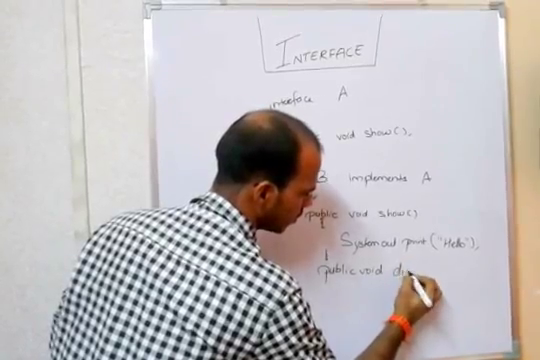 INTERFACE
interface A
void show();
B implements A
public void show()
System out print ("Hello");
public void di